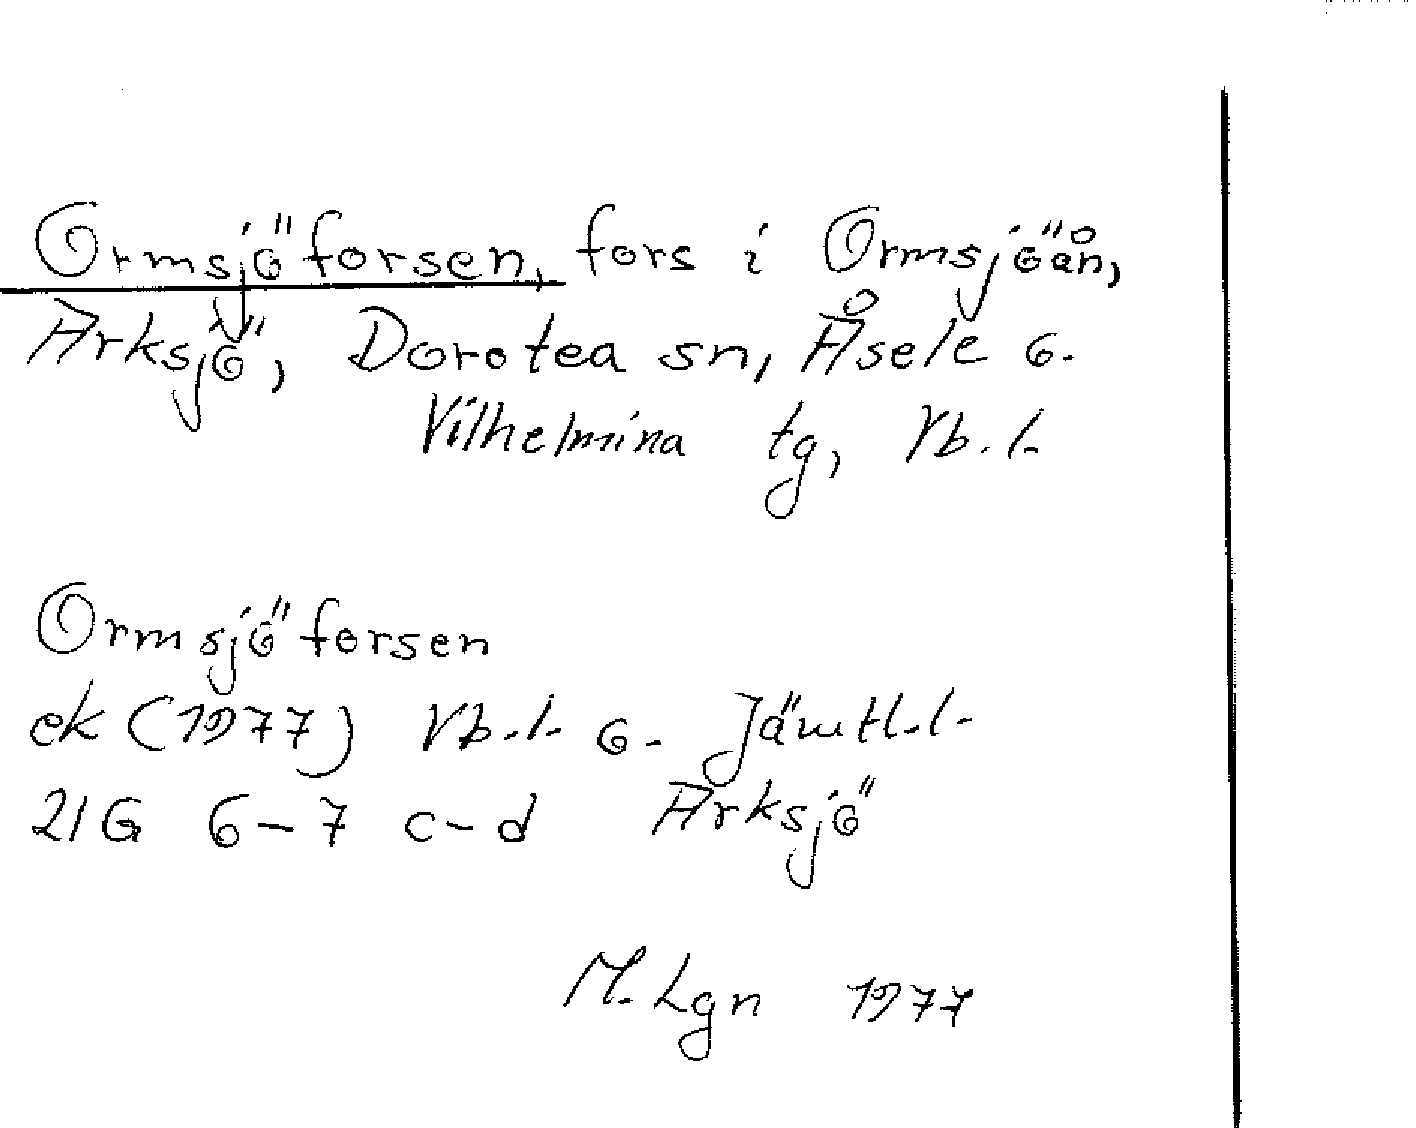 Ormsjöforsen, fors i Ormsjöån,
Arksjö, Dorotea sn, Åsele o.
Vilhelmina tg, Vb.l.
Ormsjöforsen
ek (1977) Vb.l. o. Jämtl.l.
21G 6-7 c-d Arksjö
M. Lgn 1977